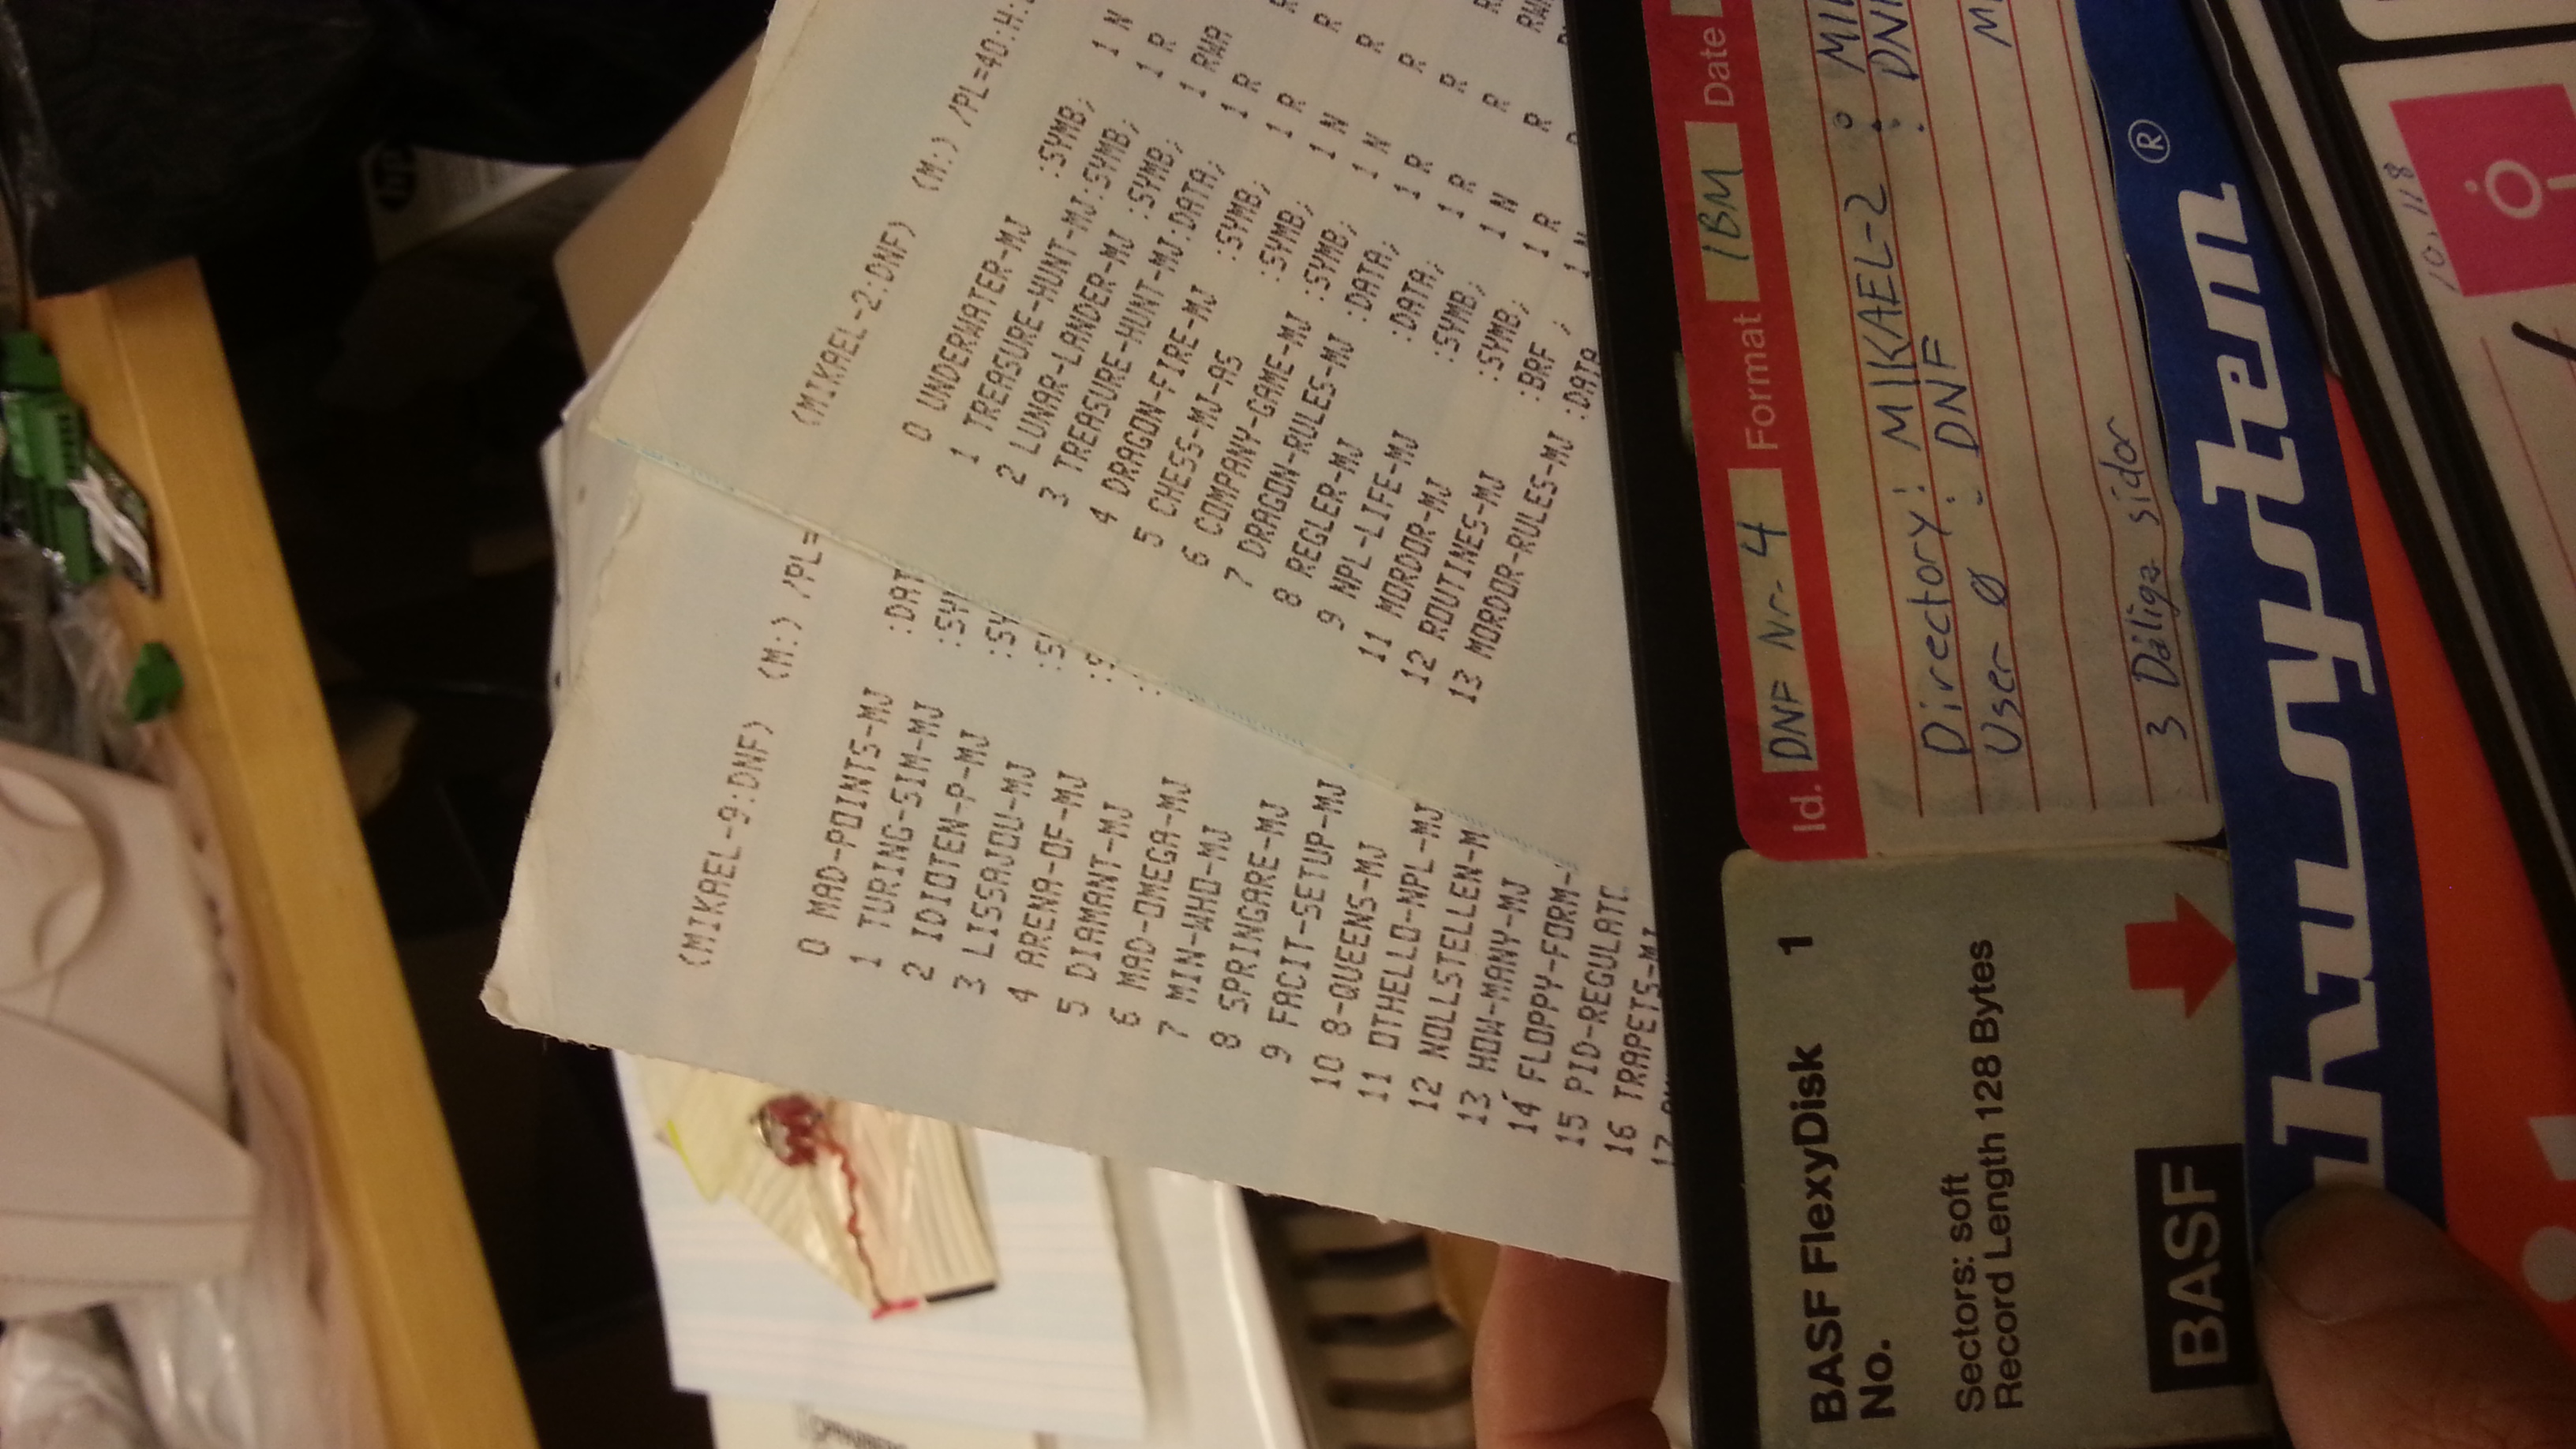 (MIKAEL-9:DNF) (M:) /PL=
0 MAD-POINTS-MJ :DAT
1 TURING-SIM-MJ :SY
2 IDIOTEN-P-MJ :SY
3 LISSAJOU-MJ
4 ARENA-OF-MJ
5 DIAMANT-MJ
6 MAD-OMEGA-MJ
7 MIN-WHO-MJ
8 SPRINGARE-MJ
9 FACIT-SETUP-MJ
10 8-QUEENS-MJ
11 OTHELLO-NPL-MJ
12 NOLLSTELLEN-M
13 HOW-MANY-MJ
14 FLOPPY-FORM-
15 PID-REGULATO
16 TRAPETS-MJ
17
(MIKAEL-2:DNF) (M:) /PL=40:H:
0 UNDERWATER-MJ :SYMB; 1 N
1 TREASURE-HUNT-MJ:SYMB; 1 R
2 LUNAR-LANDER-MJ :SYMB; 1 RWA
3 TREASURE-HUNT-MJ:DATA; 1 R
4 DRAGON-FIRE-MJ :SYMB; 1 R
5 CHESS-MJ-AS :SYMB; 1 N
6 COMPANY-GAME-MJ :SYMB; 1 N
7 DRAGON-RULES-MJ :DATA; 1 R
8 REGLER-MJ :DATA; 1 R
9 NPL-LIFE-MJ :SYMB; 1 N
11 MORDOR-MJ :SYMB; 1 R
12 ROUTINES-MJ :BRF ; 1 N
13 MORDOR-RULES-MJ :DATA
Id. DNF Nr. 4 Format IBM Date
Directory: MIKAEL-2
User Ø : DNF
3 Dåliga sidor
BASF FlexyDisk 1
No.
Sectors: soft
Record Length 128 Bytes
BASF
®